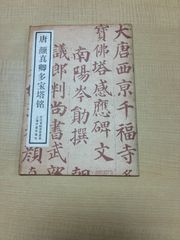 大唐西京千福寺
寶佛塔感應碑文
南陽岑勛撰
議郎判尚書武
顏
唐 颜真卿多宝塔铭